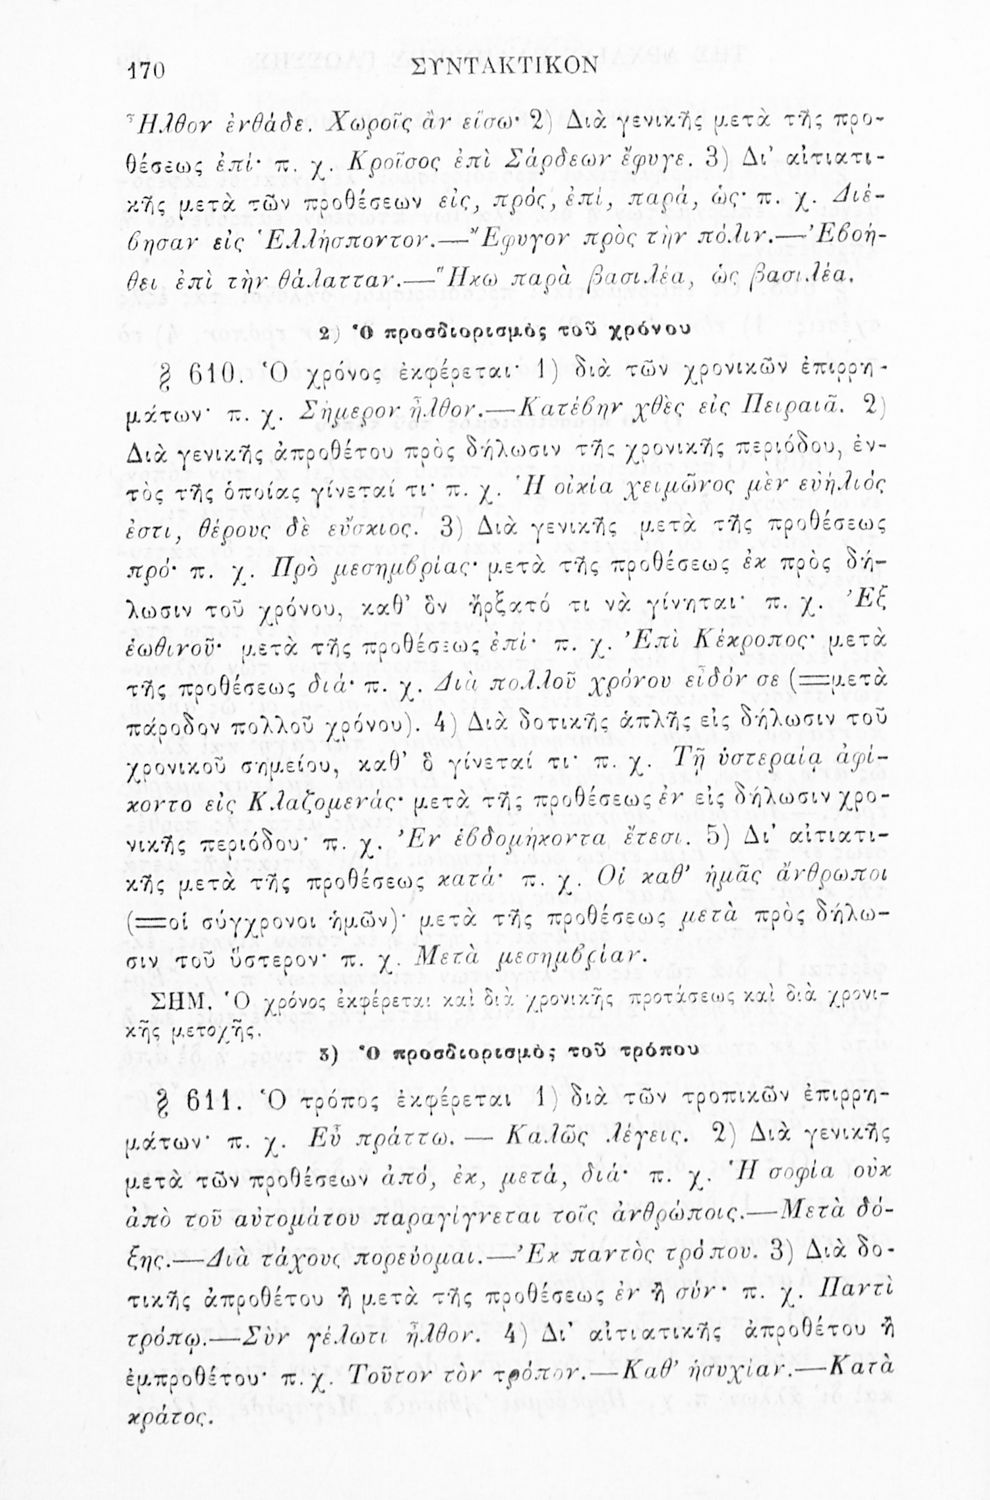 170 ΣΥΝΤΑΚΤΙΚΟΝ
Ἦλθον ἐνθάδε. Χωροῖς ἂν εἴσω· 2) Διὰ γενικῆς μετὰ τῆς προ-
θέσεως ἐπί· π. χ. Κροῖσος ἐπὶ Σάρδεων ἔφυγε. 3) Δι' αἰτιατι-
κῆς μετὰ τῶν προθέσεων εἰς, πρός, ἐπί, παρά, ὡς· π. χ. Διέ-
βησαν εἰς Ἑλλήσποντον.—Ἔφυγον πρὸς τὴν πόλιν.—Ἐβοή-
θει ἐπὶ τὴν θάλατταν.—Ἥκω παρὰ βασιλέα, ὡς βασιλέα.
2) Ὁ προσδιορισμὸς τοῦ χρόνου
§ 610. Ὁ χρόνος ἐκφέρεται· 1) διὰ τῶν χρονικῶν ἐπιρρη-
μάτων· π. χ. Σήμερον ἦλθον.—Κατέβην χθὲς εἰς Πειραιᾶ. 2)
Διὰ γενικῆς ἀπροθέτου πρὸς δήλωσιν τῆς χρονικῆς περιόδου, ἐν-
τὸς τῆς ὁποίας γίνεταί τι· π. χ. Ἡ οἰκία χειμῶνος μὲν εὐήλιός
ἐστι, θέρους δὲ εὔσκιος. 3) Διὰ γενικῆς μετὰ τῆς προθέσεως
πρό· π. χ. Πρὸ μεσημβρίας· μετὰ τῆς προθέσεως ἐκ πρὸς δή-
λωσιν τοῦ χρόνου, καθ' ὃν ἤρξατό τι νὰ γίνηται· π. χ. Ἐξ
ἑωθινοῦ· μετὰ τῆς προθέσεως ἐπί· π. χ. Ἐπὶ Κέκροπος· μετὰ
τῆς προθέσεως διά· π. χ. Διὰ πολλοῦ χρόνου εἶδόν σε (=μετὰ
πάροδον πολλοῦ χρόνου). 4) Διὰ δοτικῆς ἁπλῆς εἰς δήλωσιν τοῦ
χρονικοῦ σημείου, καθ' ὃ γίνεταί τι· π. χ. Τῇ ὑστεραίᾳ ἀφί-
κοντο εἰς Κλαζομενάς· μετὰ τῆς προθέσεως ἐν εἰς δήλωσιν χρο-
νικῆς περιόδου· π. χ. Ἐν ἑβδομήκοντα ἔτεσι. 5) Δι' αἰτιατι-
κῆς μετὰ τῆς προθέσεως κατά· π. χ. Οἱ καθ' ἡμᾶς ἄνθρωποι
(=οἱ σύγχρονοι ἡμῶν)· μετὰ τῆς προθέσεως μετὰ πρὸς δήλω-
σιν τοῦ ὕστερον· π. χ. Μετὰ μεσημβρίαν.
ΣΗΜ. Ὁ χρόνος ἐκφέρεται καὶ διὰ χρονικῆς προτάσεως καὶ διὰ χρονι-
κῆς μετοχῆς.
3) Ὁ προσδιορισμὸς τοῦ τρόπου
§ 611. Ὁ τρόπος ἐκφέρεται 1) διὰ τῶν τροπικῶν ἐπιρρη-
μάτων· π. χ. Εὖ πράττω. — Καλῶς λέγεις. 2) Διὰ γενικῆς
μετὰ τῶν προθέσεων ἀπό, ἐκ, μετά, διά· π. χ. Ἡ σοφία οὐκ
ἀπὸ τοῦ αὐτομάτου παραγίγνεται τοῖς ἀνθρώποις.—Μετὰ δό-
ξης.—Διὰ τάχους πορεύομαι.—Ἐκ παντὸς τρόπου. 3) Διὰ δο-
τικῆς ἀπροθέτου ἢ μετὰ τῆς προθέσεως ἐν ἢ σύν· π. χ. Παντὶ
τρόπῳ.—Σὺν γέλωτι ἦλθον. 4) Δι' αἰτιατικῆς ἀπροθέτου ἢ
ἐμπροθέτου· π. χ. Τοῦτον τὸν τρόπον.—Καθ' ἡσυχίαν.—Κατὰ
κράτος.